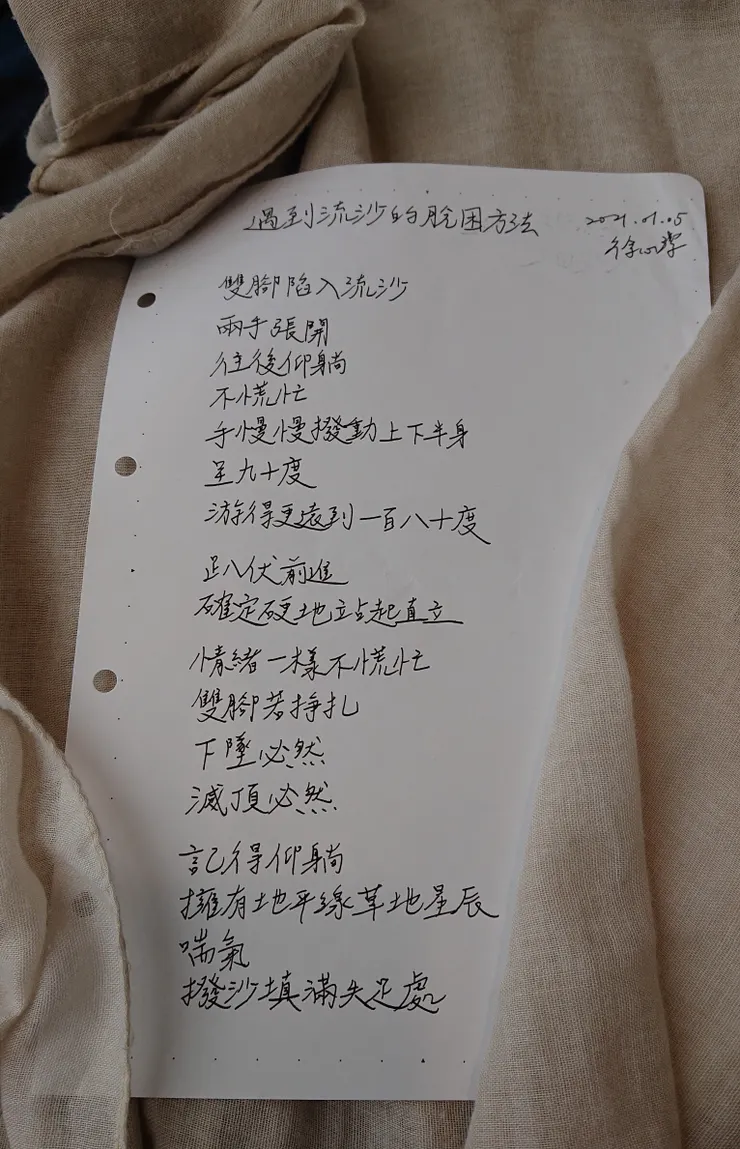 遇到流沙的脫困方法
2021.01.05
徐心
雙腳陷入流沙
兩手張開
往後仰躺
不慌忙
手慢慢撥動上下半身
呈九十度
游得更遠到一百八十度
趴伏前進
確定硬地站起直立
情緒一樣不慌忙
雙腳若掙扎
下墜必然
滅頂必然
記得仰躺
擁有地平線草地星辰
喘氣
撥沙填滿失足處